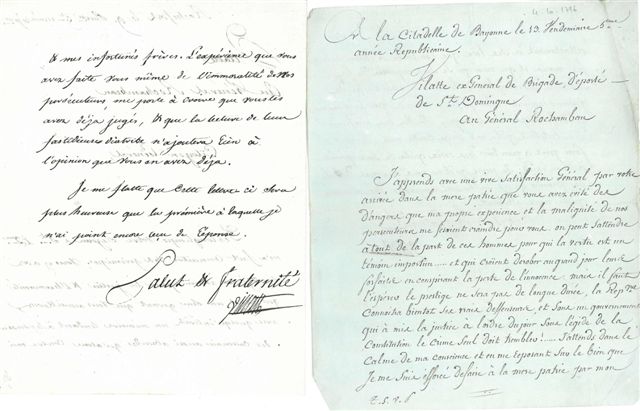 & mes infortunés frères. L'expérience que vous
avez faite vous même de l'immoralité de Nos
persécuteurs, me porte à croire que vous les
avez déja jugés, & que la lecture de leur
fastidieuse diatribe n'ajoutera Rien à
l'opinion que vous en avez déja.
Je me flatte que Cette lettre ci Sera
plus heureuse que la première à laquelle je
n'ai point encore reçu de Réponse.
Salut & Fraternité
4-10-1796
A la Citadelle de Bayonne le 13 Vendemiaire 5ème
année Républicaine.
Vilatte ex Général de Brigade Déporté
de St. Domingue
au Général Rochambau
J'apprends avec une vive Satisfaction Général par votre
arrivée dans la mere patrie que vous avez évité des
dangers que ma propre experience et la malignité de nos
persécuteurs me fesoient craindre pour vous. on peut s'attendre
à tout de la part de ces hommes pour qui la vertu est un
témoin importun..... et qui croient derober au grand jour leurs
forfaits en conspirant la perte de l'innocence, mais il faut
l'esperer le prestige ne sera pas de longue durée, la Repque
connoitra bientot ses vrais deffenseurs, et sous un gouvernement
qui à mis la justice à l'ordre du jour sous l'égide de la
Constitution le Crime seul doit trembler!..... J'attends dans le
Calme de ma conscience et en me reposant Sur le bien que
Je me suis efforcé de faire à la mere patrie par mon
T. S. V. P